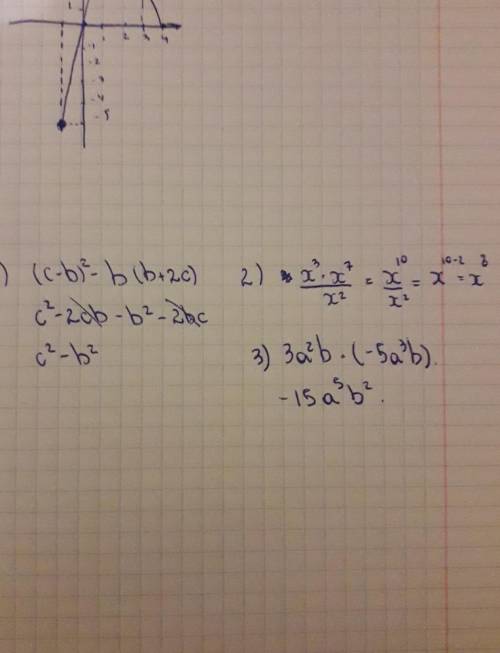 1 2 3 4
-1
-2
-3
-4
-5
) (c-b)² - b (b+2c)
c² - 2cb - b² - 2bc
c² - b²
2) x³ · x⁷ / x² = x¹⁰ / x² = x¹⁰⁻² = x⁸
3) 3a²b · (-5a³b).
-15a⁵b².